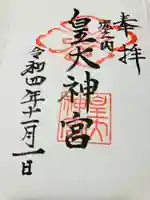 奉拝
堀之内
皇大神宮
皇大神宮
令和四年十一月一日